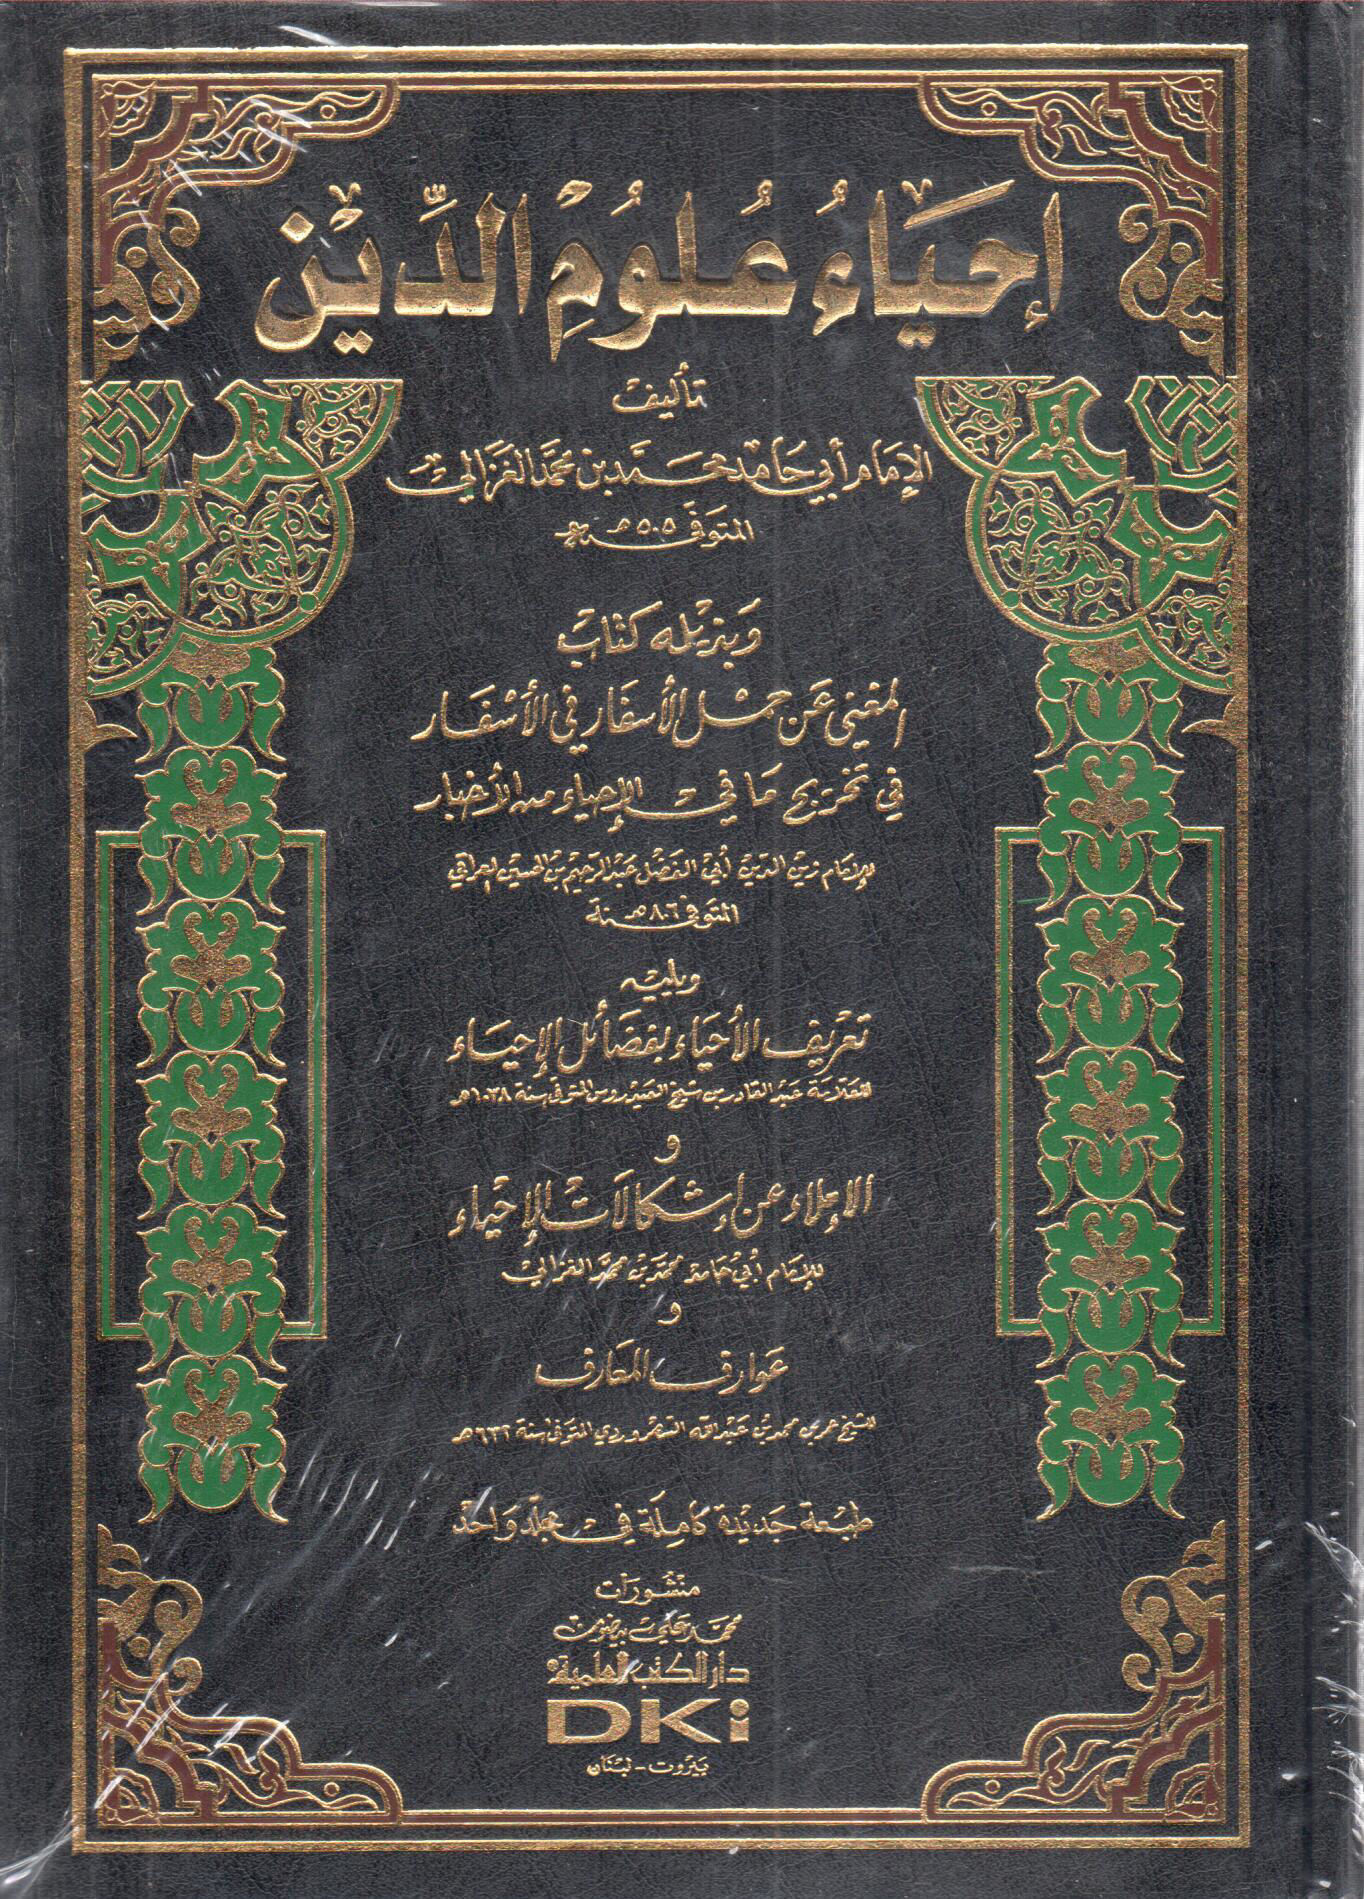 إحْيَاءُ عُلُومِ الدِّيْن
تأليف
الإمَام أبي حَامِد محمَّد بن محمَّد الغزالي
المتوفى سنة ٥٠٥ هـ
وَبذيله كتاب
المغني عَن حمل الأسفَار في الأسْفَار
في تخريج مَا في الإحياء من الأخبار
للإمَام زين الدين أبي الفضل عبد الرحيم بن الحسين العراقي
المتوفى سنة ٨٠٦ هـ
ويليه
تعريف الأحيَاء بفضَائل الإحيَاء
للعلّامة عبد القادر بن شيخ العيدروس المتوفى سنة ١٠٣٨ هـ
و
الإملاء عن إشكالات الإحياء
للإمَام أبي حَامد محمد بن محمّد الغزالي
و
عوارف المعَارف
للشيخ عمر بن محمد بن عبد الله السهروردي المتوفى سنة ٦٣٢ هـ
طبعة جَديدة كامِلة في مجلّد وَاحد
منشورات
محمد علي بيضون
دار الكتب العلمية
DKi
بَيْرُوت - لبْنَان